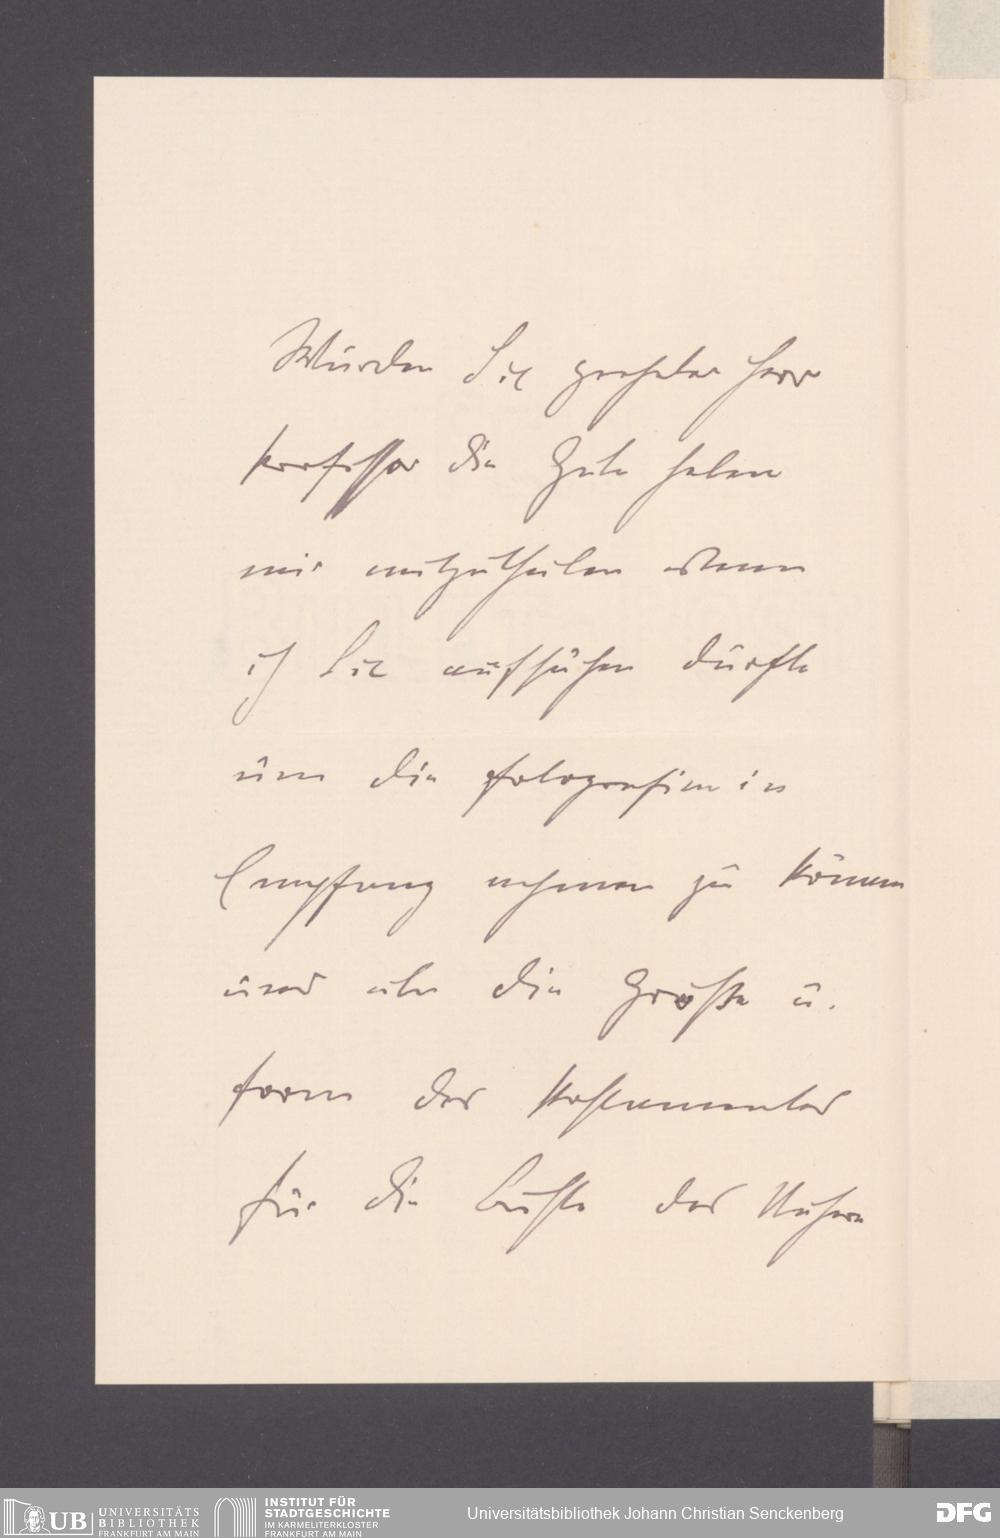 Würden Sie geehrter Herr
Professor die Güte haben
mir mitzutheilen wann
ich Sie aufsuchen dürfte
um die Fotografien in
Empfang nehmen zu können
und über die Größe u.
Form des Postamentes
für die Büste das Nähere
UB UNIVERSITÄTS
BIBLIOTHEK
FRANKFURT AM MAIN
INSTITUT FÜR
STADTGESCHICHTE
IM KARMELITERKLOSTER
FRANKFURT AM MAIN
Universitätsbibliothek Johann Christian Senckenberg
DFG